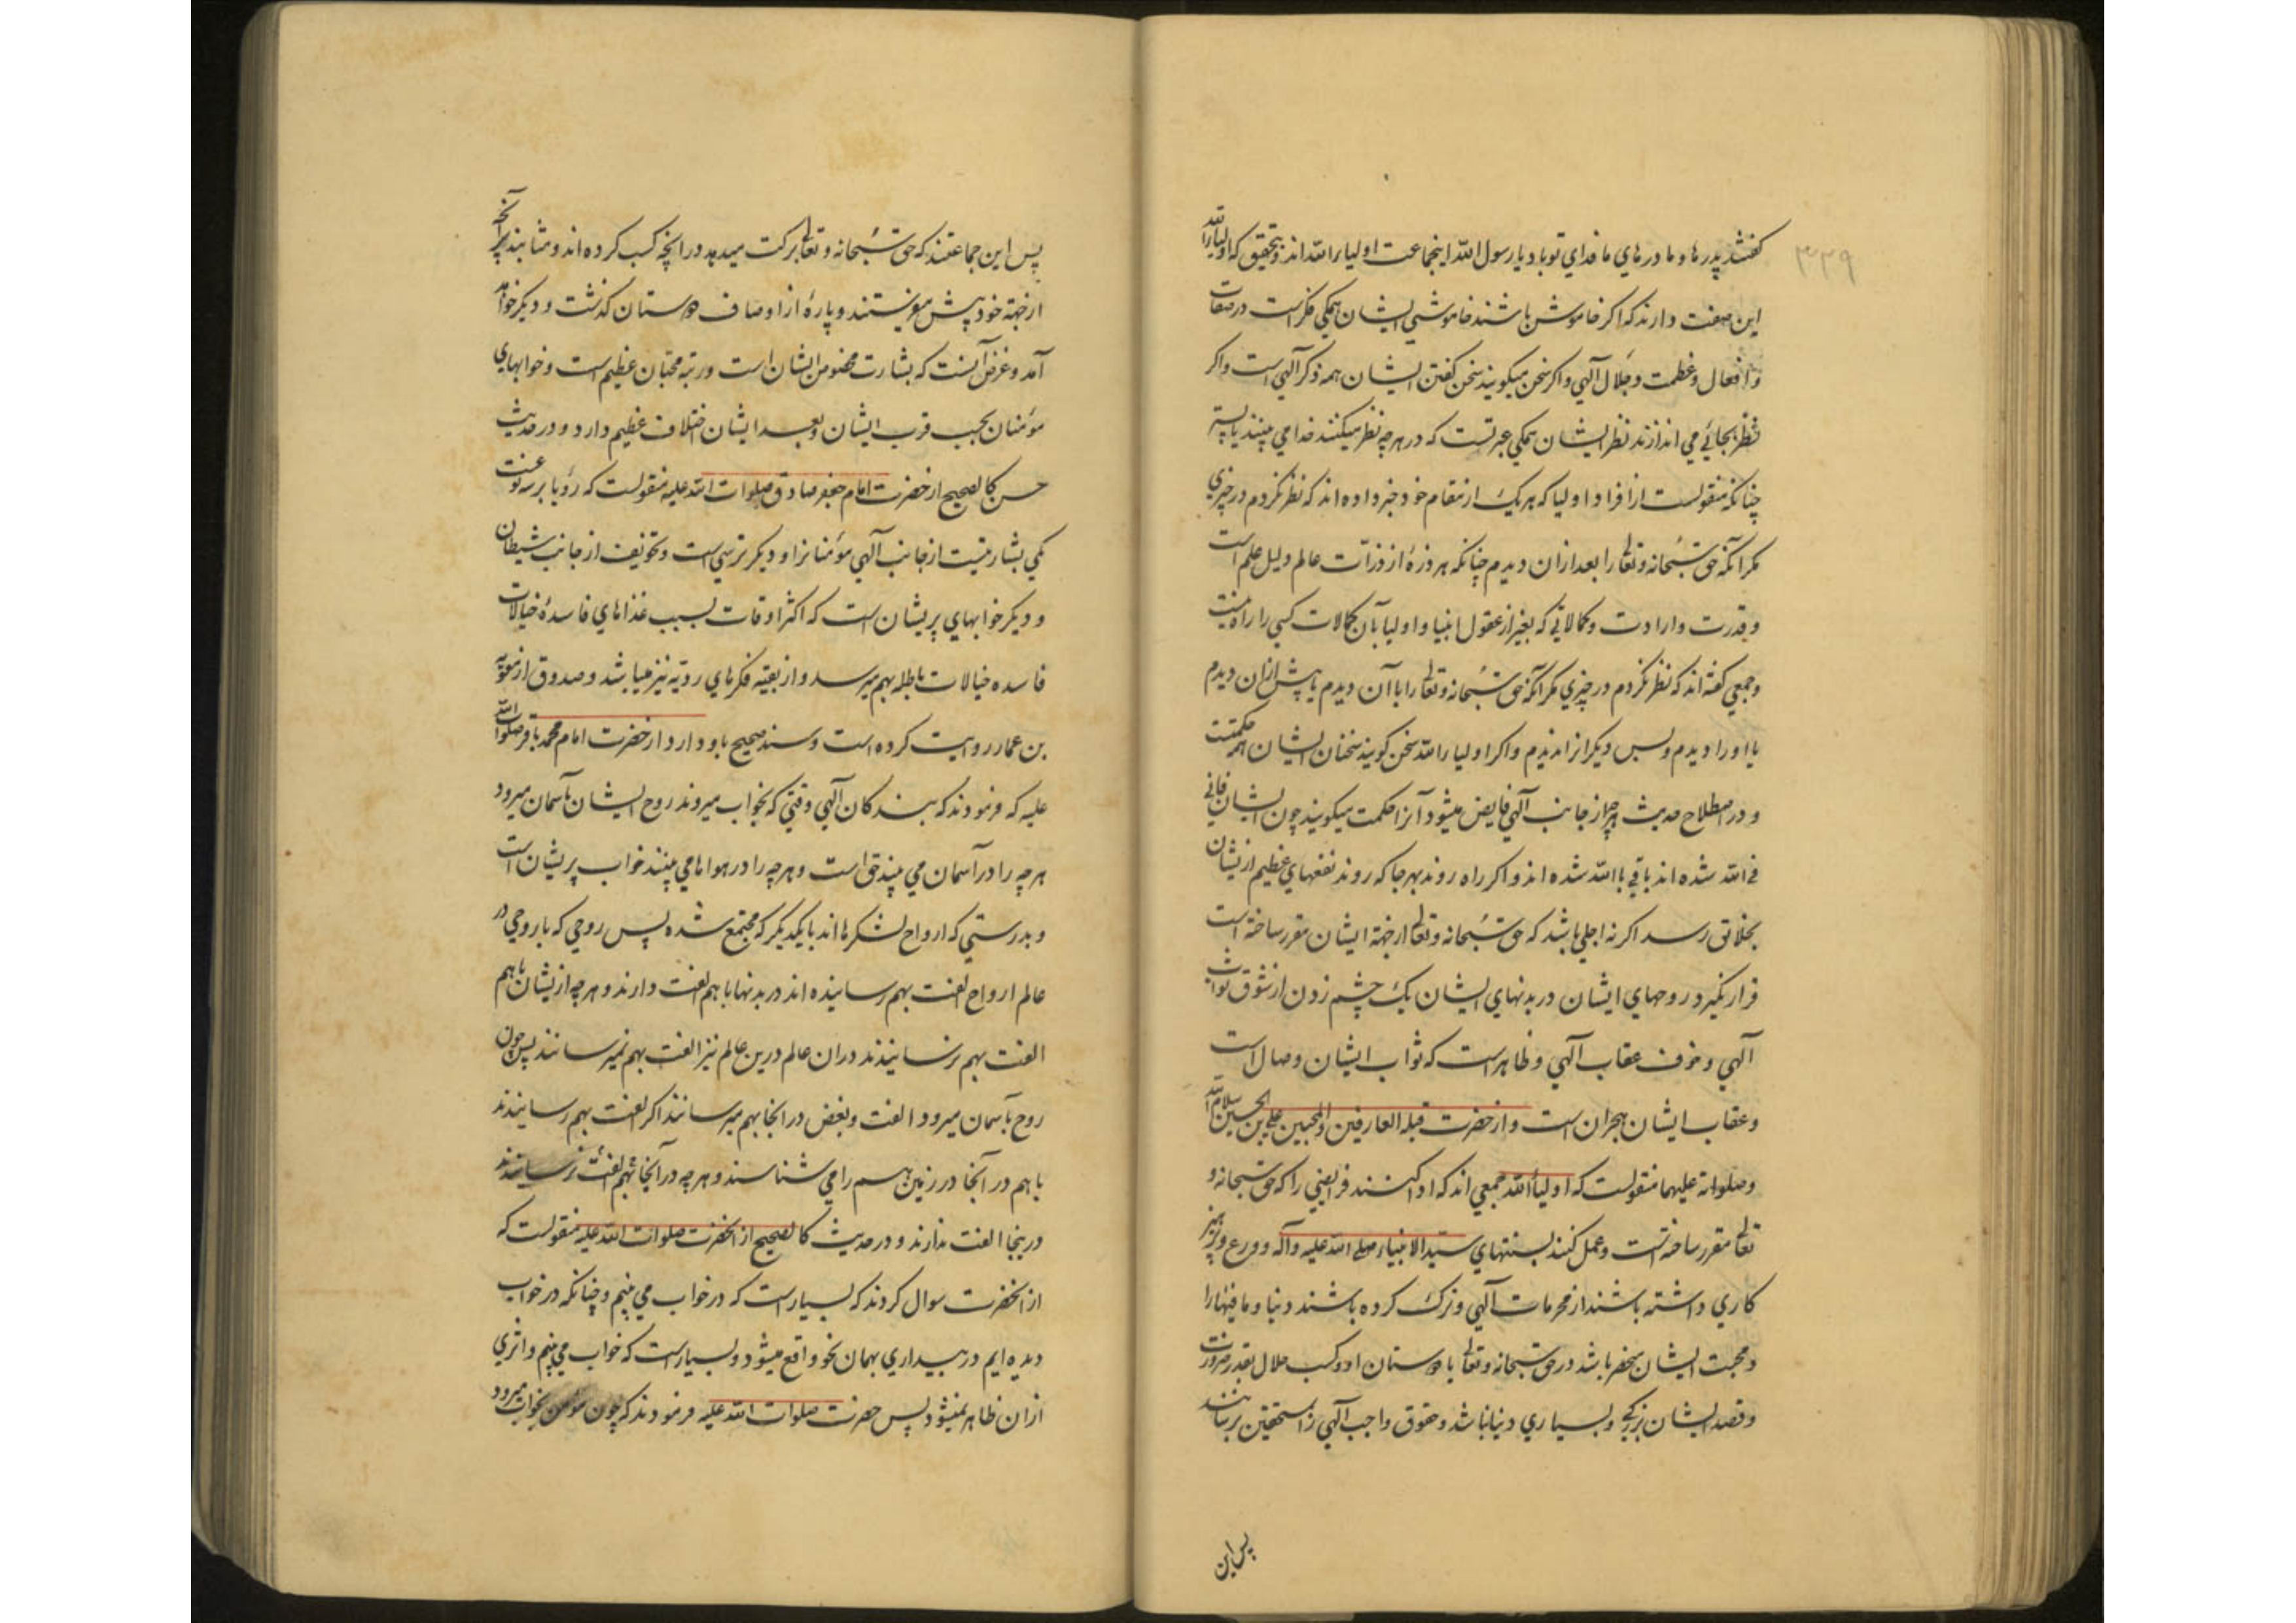 ۳۳۹
کفتند پدرها و مادرهای ما فدای تو باد یا رسول الله اینجماعت اولیاء الله اند و بتحقیق که اولیاء الله
این صفت دارند که اکر خاموش باشند خاموشی ایشان همکی فکر است در صفات
و افعال و عظمت و جلال آلهی و اکر سخن میکویند سخن کفتن ایشان همه ذکر آلهی است و اکر
نظر بجائی می اندازند نظر ایشان همکی عبرتست که در هرچه نظر میکنند خدا می بینند یا به
چنانکه منقولست از افراد اولیا که هر یک از مقام خود خبر داده اند که نظر نکردم در چیزی
مکر آنکه حق سبحانه و تعالی را بعد از ان دیدم چنانکه هر ذره از ذرات عالم دلیل علم است
و قدرت و ارادت و کمالاتی که بغیر از عقول انبیا و اولیا بآن کمالات کسی را راه نیست
و جمعی کفته اند که نظر نکردم در چیزی مکر آنکه حق سبحانه و تعالی را با آن دیدم یا پیش از ان دیدم
یا او را دیدم و بس دیکر از اندیدم و اکر اولیاء الله سخن کویند سخنان ایشان همه حکمتست
و در اصطلاح حدیث هرچه از جانب آلهی فایض میشود آنرا حکمت میکویند چون ایشان فانی
فی الله شده اند باقی با الله شده اند و اکر راه روند بهرجا که روند نفعهای عظیم از یشان
بخلایق رسد اکر نه اجلی باشد که حق سبحانه و تعالی از جهة ایشان مقرر ساخته است
قرار نکیرد روحهای ایشان در بدنهای ایشان یک چشم زدن از شوق ثواب
آلهی و خوف عقاب آلهی و ظاهر است که ثواب ایشان وصال است
و عقاب ایشان هجران است و از حضرت قبلة العارفین و المحبین علی بن الحسین سلام الله
و صلواته علیهما منقولست که اولیاء الله جمعی اند که ادا کنند فرایضی را که حق سبحانه و
تعالی مقرر ساخته است و عمل کنند بسنتهای سید الانبیاء صلی الله علیه و آله و ورع و پرهیز
کاری داشته باشند از محرمات آلهی و ترک کرده باشند دنیا و ما فیها را
و محبت ایشان منحصر باشد در حق سبحانه و تعالی با دوستان او و کسب حلال بقدر ضرورت
و قصد ایشان بزرکی و بسیاری دنیا نباشد و حقوق واجب آلهی را بمستحقین برسانند
پس این
پس این جماعتند که حق سبحانه و تعالی برکت میدهد در انچه کسب کرده اند و مثابند بر آنچه
از جهة خود پیش میفرستند و پارهٔ از اوصاف دوستان کذشت و دیکر خواهد
آمد و غرض آنست که بشارت مخصوص ایشان است و رتبه محبان عظیم است و خوابهای
مؤمنان بحسب قرب ایشان و بعد ایشان اختلاف عظیم دارد و در حدیث
حسن کالصحیح از حضرت امام جعفر صادق صلوات الله علیه منقولست که رؤیا بر سه نوعست
یکی بشارتیست از جانب آلهی مؤمنانرا و دیکر ترسی است و تخویف از جانب شیطان
و دیکر خوابهای پریشان است که اکثر اوقات بسبب غذاهای فاسده خیالات
فاسده خیالات باطله بهم میرسد و از بقیه فکرهای ردیه نیز میباشد و صدوق از معویه
بن عمار روایت کرده است و سند صحیح باو دارد از حضرت امام محمد باقر صلوات الله
علیه که فرمودند که بندکان آلهی وقتی که بخواب میروند روح ایشان بآسمان میرود
هرچه را در آسمان می بیند حق است و هرچه را در هواها می بینند خواب پریشان است
و بدرستی که ارواح لشکرها اند با یکدیکر که مجتمع شده پس روحی که با روحی در
عالم ارواح الفت بهم رسانیده اند در بدنها با هم الفت دارند و هرچه از یشان با هم
الفت بهم نرسانیدند در ان عالم درین عالم نیز الفت بهم نمیرسانند پس چون
روح بآسمان میرود الفت و بغض در انجا بهم میرسانند اکر الفت بهم رسانیدند
با هم در آنجا در زمین هم را می شناسند و هرچه در آنجا بهم الفت نرسانیدند
در ینجا الفت ندارند و در حدیث کالصحیح از انحضرت صلوات الله علیه منقولست که
از انحضرت سوال کردند که بسیار است که در خواب می بینیم و چنانکه در خواب
دیده ایم در بیداری بهمان نحو واقع میشود و بسیار است که خواب می بینیم و اثری
از ان ظاهر نمیشود پس حضرت صلوات الله علیه فرمودند که چون مؤمن بخواب میرود